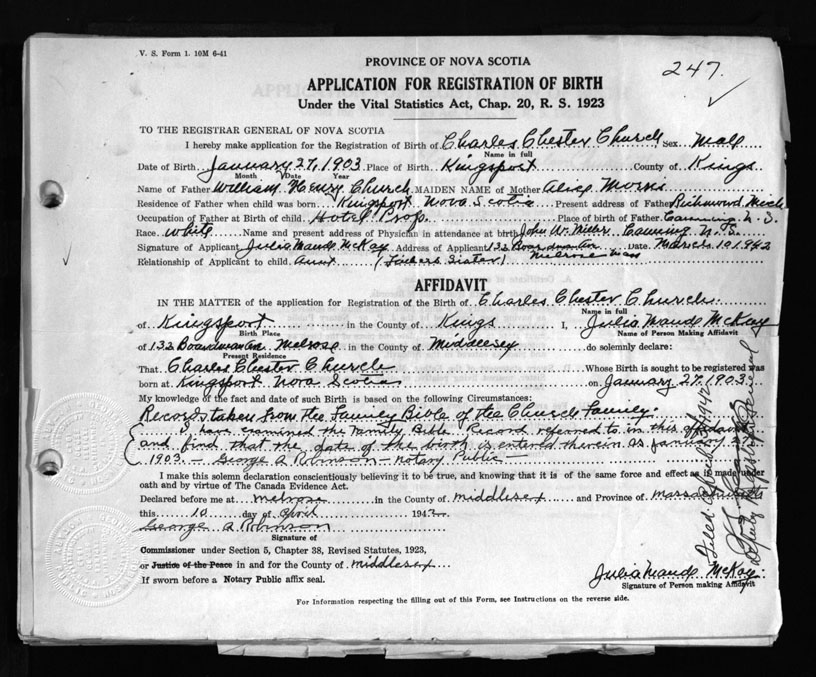 V. S. Form 1. 10M 6-41
247.
PROVINCE OF NOVA SCOTIA
APPLICATION FOR REGISTRATION OF BIRTH
Under the Vital Statistics Act, Chap. 20, R. S. 1923
TO THE REGISTRAR GENERAL OF NOVA SCOTIA
I hereby make application for the Registration of Birth of Charles Chester Church Sex Male
Name in full
Date of Birth January 27, 1903 Place of Birth Kingsport County of Kings
Month Date Year
Name of Father William Henry Church MAIDEN NAME of Mother
Residence of Father when child was born Kingsport Nova Scotia Present address of Father Richmond Mich
Occupation of Father at Birth of child Hotel Prop. Place of birth of Father Canning N. S.
Race White Name and present address of Physician in attendance at birth John W. Miller Canning N. S.
Signature of Applicant Julia Maude McKay Address of Applicant 132 Boardman Ave Date March 10 1942
Melrose Mass
Relationship of Applicant to child Aunt (Fathers Sister)
AFFIDAVIT
IN THE MATTER of the application for Registration of the Birth of Charles Chester Church
Name in full
of Kingsport in the County of Kings I, Julia Maude McKay
Birth Place Name of Person Making Affidavit
of 132 Boardman Ave Melrose in the County of Middlesex do solemnly declare:
Present Residence
That Charles Chester Church Whose Birth is sought to be registered was
born at Kingsport Nova Scotia on January 27. 1903
My knowledge of the fact and date of such Birth is based on the following Circumstances:
Records taken from the Family Bible of the Church Family.
I have examined the Family Bible Record referred to in this affidavit
and find that the date of the birth is entered therein as January
1903. — George A Robinson — Notary Public —
I make this solemn declaration conscientiously believing it to be true, and knowing that it is of the same force and effect as if made under
oath and by virtue of The Canada Evidence Act.
Declared before me at Melrose in the County of Middlesex and Province of Massachusetts
this 10 day of April 1942
George A Robinson
Signature of
Commissioner under Section 5, Chapter 38, Revised Statutes, 1923,
or Justice of the Peace in and for the County of Middlesex
If sworn before a Notary Public affix seal.
Julia Maude McKay
Signature of Person making Affidavit
For Information respecting the filling out of this Form, see Instructions on the reverse side.
1942
Deputy Registrar General